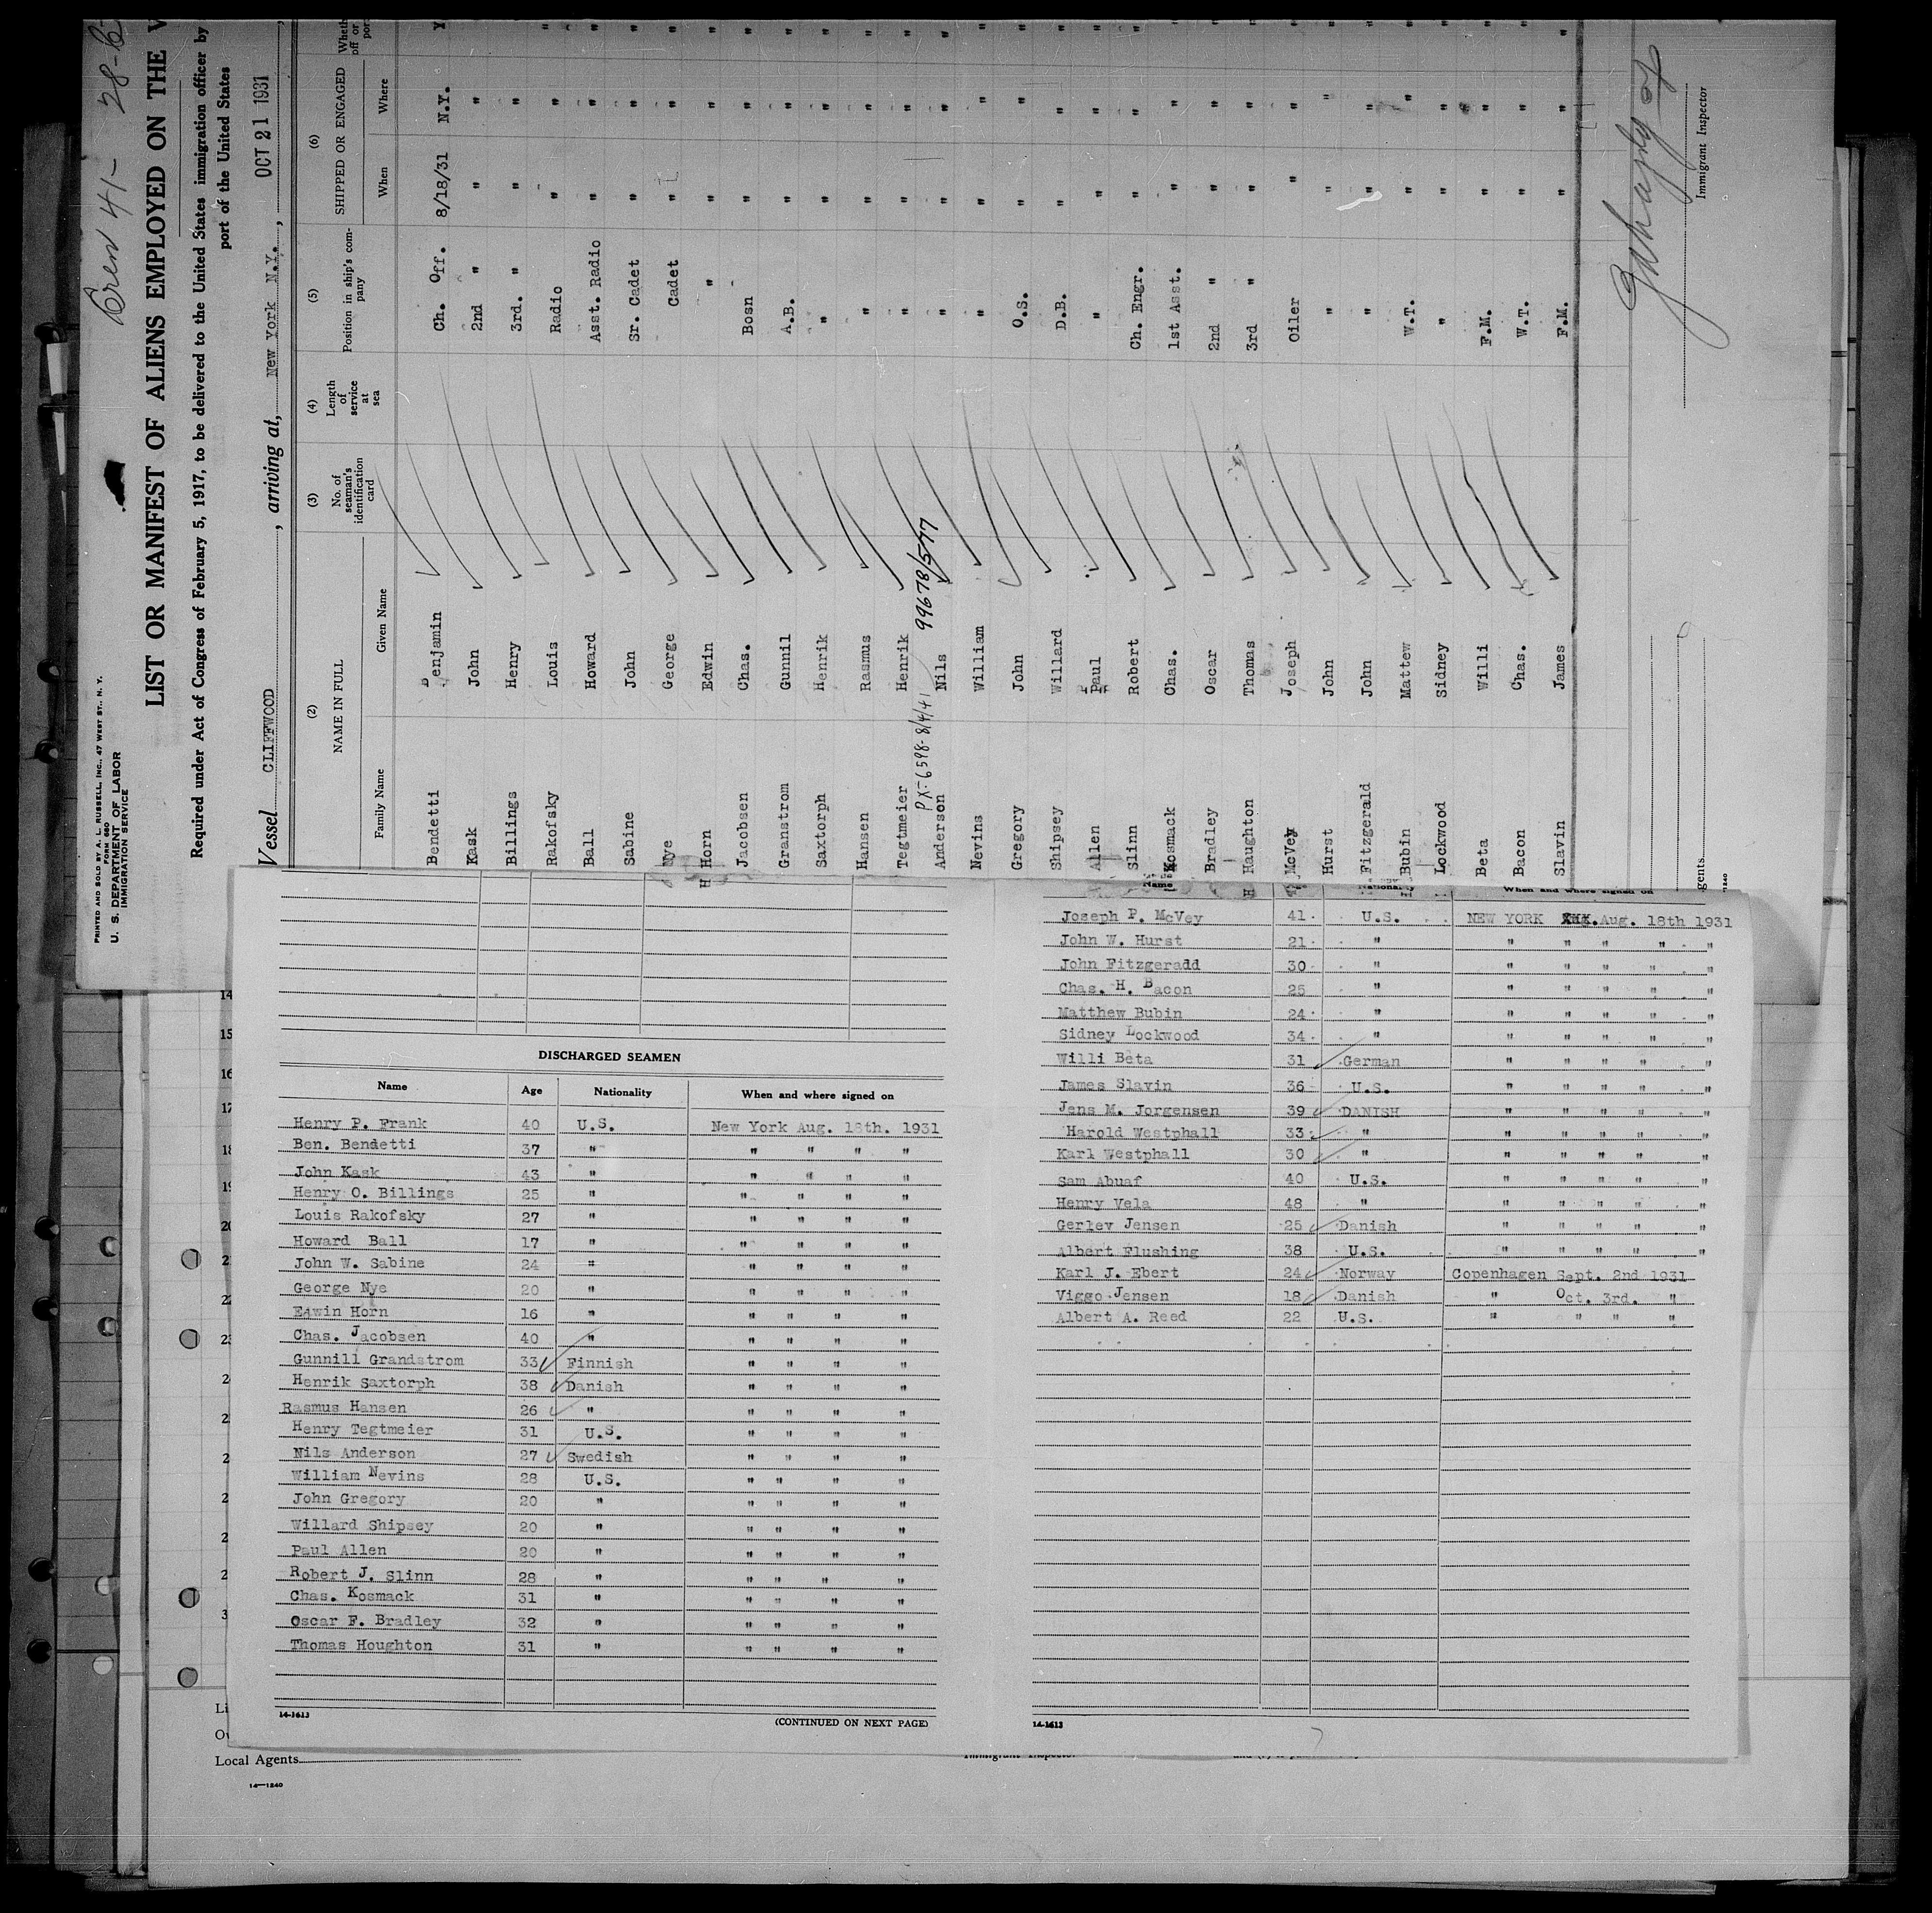 Crew 41- 28-6-
PRINTED AND SOLD BY A. L. RUSSELL, INC., 47 WEST ST., N. Y.
FORM 680
U. S. DEPARTMENT OF LABOR
IMMIGRATION SERVICE
LIST OR MANIFEST OF ALIENS EMPLOYED ON THE V
Required under Act of Congress of February 5, 1917, to be delivered to the United States immigration officer by
port of the United States
Vessel CLIFFWOOD , arriving at, New York N.Y. , OCT 21 1931
(2) (3) (4) (5) (6)
NAME IN FULL No. of seaman's identification card Length of service at sea Position in ship's company SHIPPED OR ENGAGED
Family Name Given Name When Where
Bendetti Benjamin Ch. Off. 8/18/31 N.Y. Y
Kask John 2nd " " "
Billings Henry 3rd. " " "
Rakofsky Louis Radio " " "
Ball Howard Asst. Radio " " "
Sabine John Sr. Cadet " " "
Nye George Cadet " " "
Horn Edwin " " " "
Jacobsen Chas. Bosn " " "
Granstrom Gunnil A.B. " " "
Saxtorph Henrik " " " "
Hansen Rasmus " " " "
Tegtmeier Henrik " " " "
PX-6598-8/4/41 99678/577
Anderson Nils " " " "
Nevins William " " " "
Gregory John O.S. " " "
Shipsey Willard D.B. " " "
Allen Paul " " " "
Slinn Robert Ch. Engr. " " "
Kosmack Chas. 1st Asst. " " "
Bradley Oscar 2nd " " " "
Haughton Thomas 3rd " " " "
McVey Joseph Oiler " " "
Hurst John " " " "
Fitzgerald John " " " "
Bubin Mattew W.T. " " "
Lockwood Sidney " " " "
Beta Willi F.M. " " "
Bacon Chas. W.T. " " "
Slavin James F.M. " " "
Immigrant Inspector
DISCHARGED SEAMEN
Name Age Nationality When and where signed on
Henry P. Frank 40 U.S. New York Aug. 18th. 1931
Ben. Bendetti 37 " " " " "
John Kask 43 " " " " "
Henry O. Billings 25 " " " " "
Louis Rakofsky 27 " " " " "
Howard Ball 17 " " " " "
John W. Sabine 24 " " " " "
George Nye 20 " " " " "
Edwin Horn 16 " " " " "
Chas. Jacobsen 40 " " " " "
Gunnill Grandstrom 33 Finnish " " " "
Henrik Saxtorph 38 Danish " " " "
Rasmus Hansen 26 " " " " "
Henry Tegtmeier 31 U.S. " " " "
Nils Anderson 27 Swedish " " " "
William Nevins 28 U.S. " " " "
John Gregory 20 " " " " "
Willard Shipsey 20 " " " " "
Paul Allen 20 " " " " "
Robert J. Slinn 28 " " " " "
Chas. Kosmack 31 " " " " "
Oscar F. Bradley 32 " " " " "
Thomas Houghton 31 " " " " "
14-1613
(CONTINUED ON NEXT PAGE)
Name Nationality When and where signed on
Joseph P. McVey 41 U.S. NEW YORK Aug. 18th 1931
John W. Hurst 21 " " " " " "
John Fitzgeradd 30 " " " " " "
Chas. H. Bacon 25 " " " " " "
Matthew Bubin 24 " " " " " "
Sidney Lockwood 34 " " " " " "
Willi Beta 31 German " " " " "
James Slavin 36 U.S. " " " " "
Jens M. Jorgensen 39 DANISH " " " " "
Harold Westphall 33 " " " " " "
Karl Westphall 30 " " " " " "
Sam Abuaf 40 U.S. " " " " "
Henry Vela 48 " " " " " "
Gerlev Jensen 25 Danish " " " " "
Albert Flushing 38 U.S. " " " " "
Karl J. Ebert 24 Norway Copenhagen Sept. 2nd 1931
Viggo Jensen 18 Danish " Oct. 3rd. "
Albert A. Reed 22 U.S. " " " "
14-1613
Local Agents
14—1240